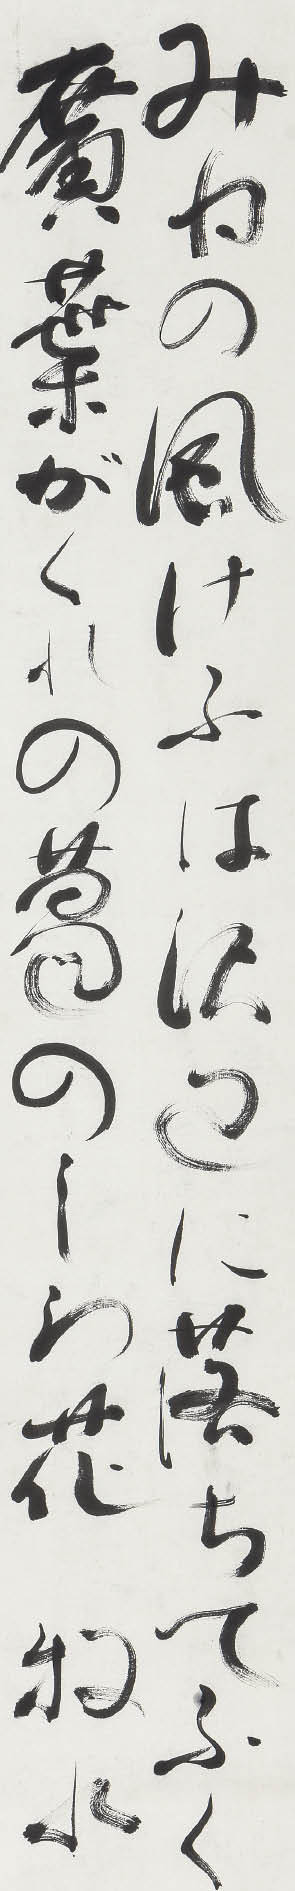 みねの風けふは沢辺に落ちてふく
廣葉がくれの葛のしら花 牧水